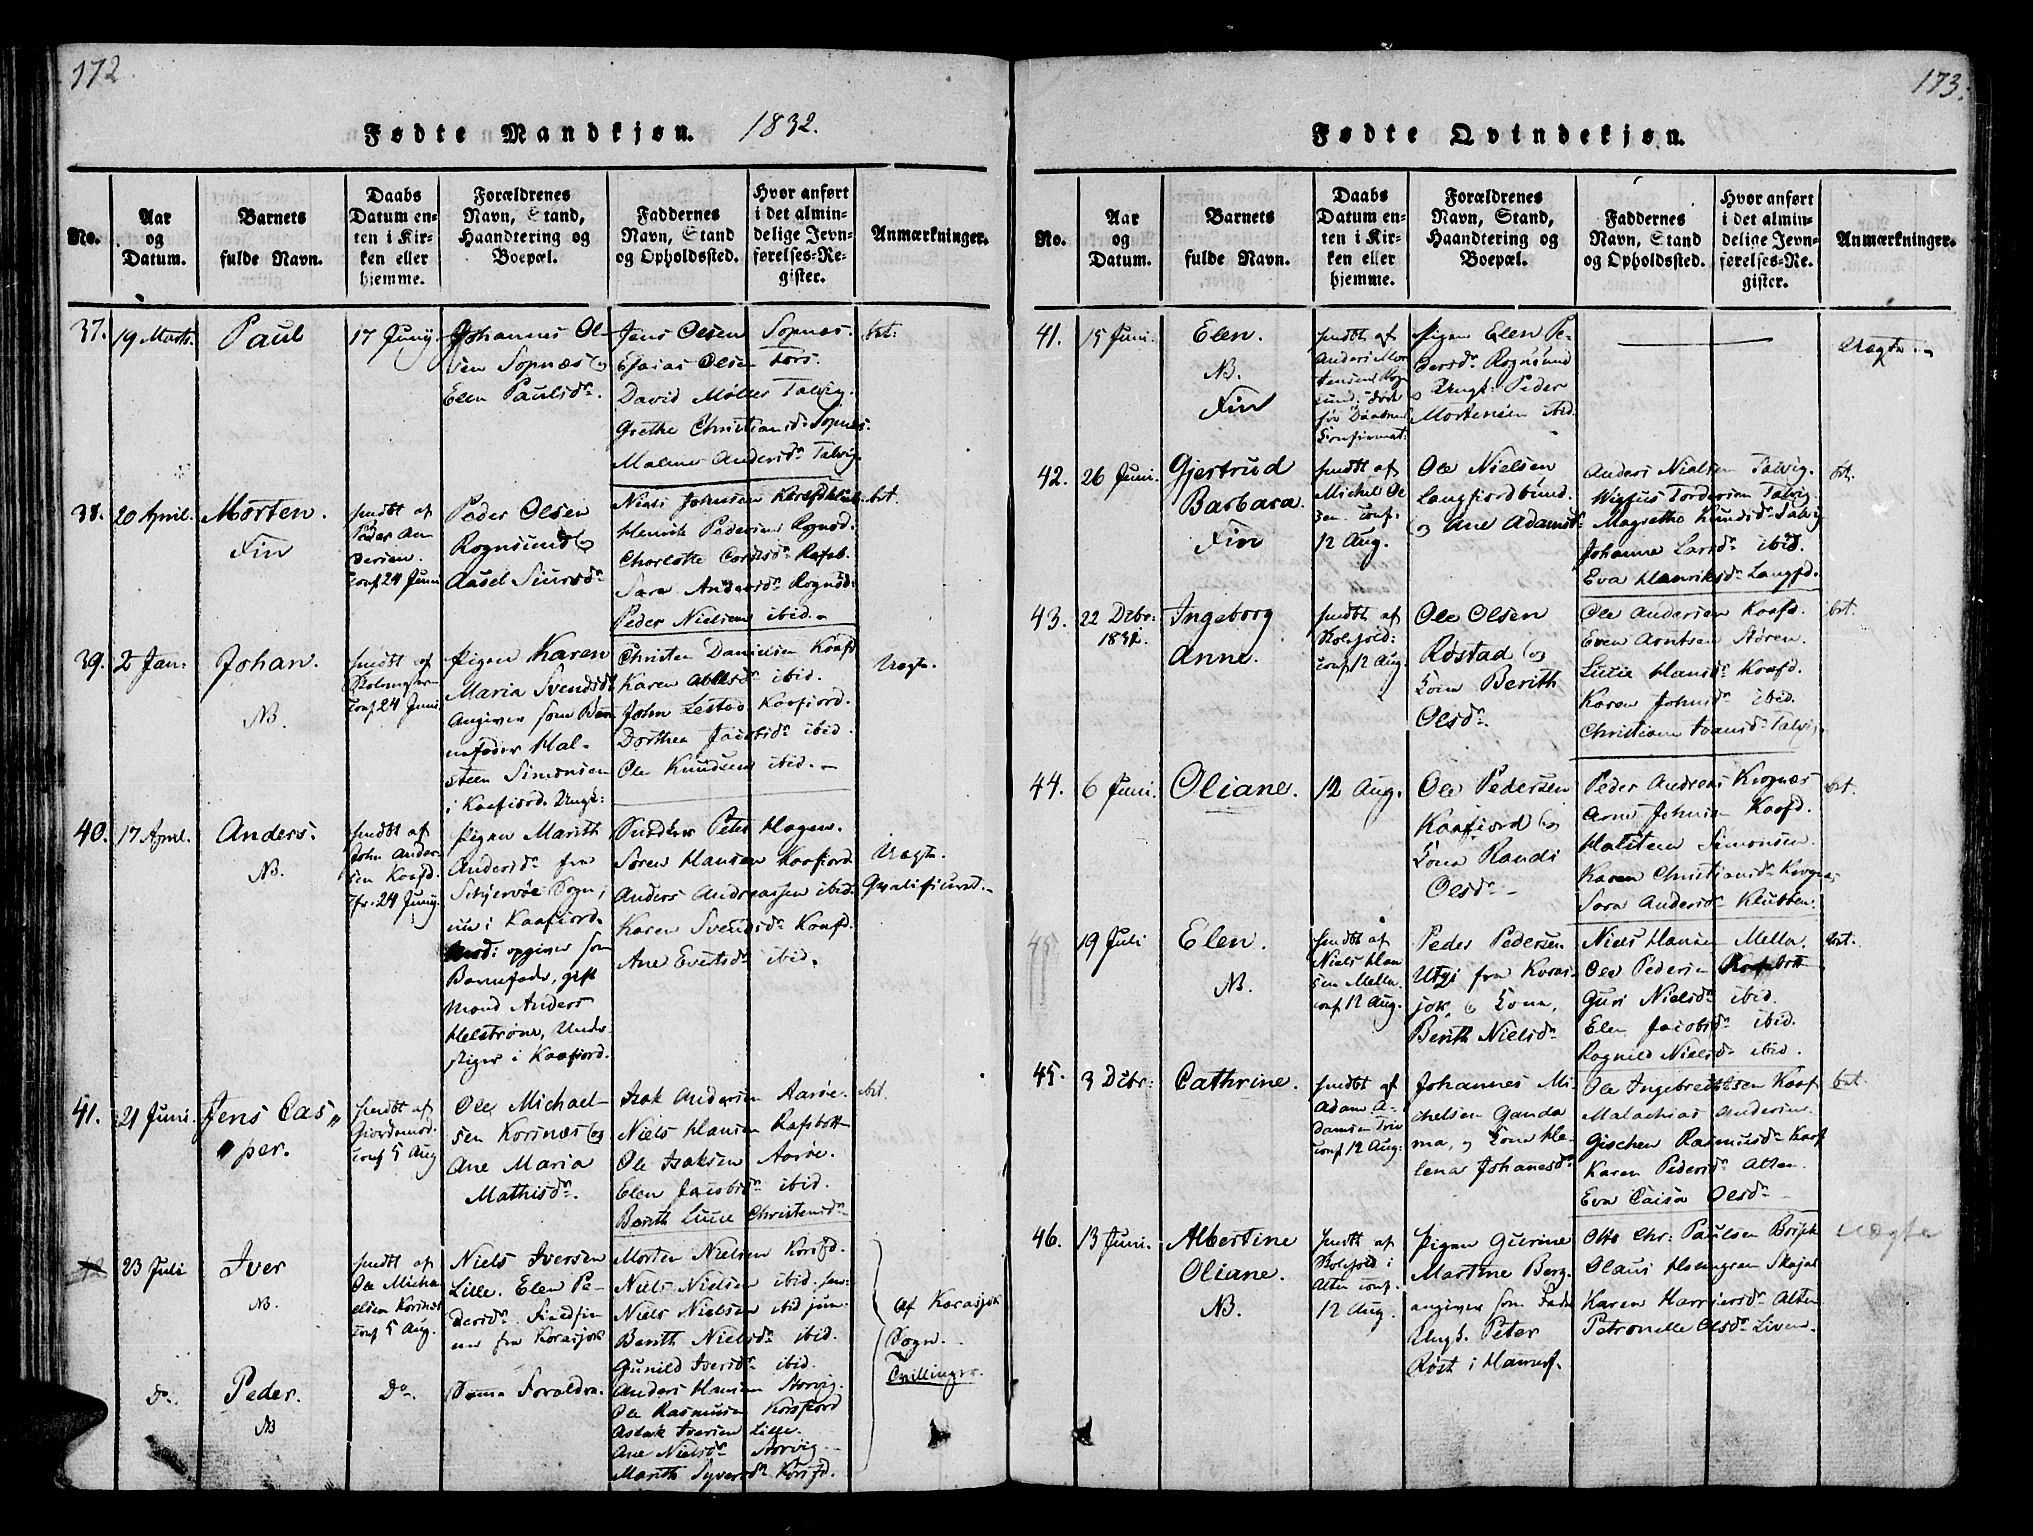 172.
Fødte Mandkjøn. 1832.
No.
Aar
og
Datum.
Barnets
fulde Navn.
Daabs
Datum en-
ten i Kir-
ken eller
hjemme.
Forældrenes
Navn, Stand,
Haandtering og
Boepæl.
Faddernes
Navn, Stand
og Opholdssted.
Hvor anført
i det almin-
delige Jevn-
førelses-Re-
gister.
Anmærkninger.
37.
19 Marts.
Paul
17 Junij.
Johannes Ol-
sen Sopnæs og
Elen Paulsdr.
Jens Olsen Sopnæs.
Esaias Olsen Fors.
David Møller Talvig.
Grethe Christiansdr Sopnæs.
Malene Andersdr Talvig
38.
20 April.
Morten.
Fin
hmdbt af
Peder An
dersen.
conf 24 Junii
Peder Olsen
Rognsund og
Aasel Siursdr
Niels Johnsen
Henrik Pedersen Rognsd.
Charlotte Rafsb.
Sara Andersdr Rognsd.
Peder Nielsen ibid.
39.
2 Jan:
Johan.
NB.
hmdbt af
Skolemester
conf 24 Juni
Pigen Karen
Maria Svendsdr
angiver som Bar
nefader Hal-
steen Simonsen
i Kaafiord. Ungk:
Christen Danielsen Kaafd
Karen ibid.
John Lestad Kaafiord.
Dorthea Jacobsdr ibid.
Ole Knudsen ibid.
Uægte
40.
17 April.
Anders.
NB.
hmdbt af
John Ander-
sen Kaafd.
24 Junij.
Pigen Marith
Andersdr fra
Schjervøe Sogn,
nu i Kaafiord.
opgiver som
Barnefader, gift
Mand Anders
Helstrøm, Under
stiger i Kaafiord.
Peter Hagen.
Søren Hansen Kaafiord
Anders Andreassen ibid.
Karen Svendsdr Kaafd.
Ane Evertsdr ibid.
Uægte.
41.
21 Juni.
Jens Cas
per.
hmdbt af
conf 5 Aug
Ole Michael-
sen Korsnæs og
Ane Maria
Mathisdr.
Isak Andersen Aarøe.
Niels Hansen Rafsbott
Ole Isaksen Aarøe.
Elen Jacobsdr ibid.
Berith Lucie Christensdr
42
23 Juli
Iver
NB.
hmdbt af
Ole Micha
elsen Korsnæs
conf 5 Aug.
Niels Iversen
Lille. Elen Pe-
dersdr. Fieldfin
ner fra Korasjok
Morten Nielsen Korsfd.
Niels Nielsen ibid sen:
Niels Nielsen ibid jun:
Berith Nielsdr ibid.
Gunild Iversdr ibid.
Af Karasjok
Sogn.
Tvillinger.
Do.
Peder.
NB
Do.
Samme Foræld.
Anders Hansen Storvig.
Ole Rasmusen Korsfiord
Aslak Iversen Lille.
Ane Nielsdr Storvig
Marith Syversdr Korsfd.
173.
Fødte Qvindekjøn.
No.
Aar
og
Datum.
Barnets
fulde Navn.
Daabs
Datum en-
ten i Kir-
ken eller
hjemme.
Forældrenes
Navn, Stand,
Haandtering og
Boepæl.
Faddernes
Navn, Stand
og Opholdssted.
Hvor anført
i det almin-
delige Jevn-
førelses-Re-
gister.
Anmærkninger.
41.
15 Juni.
Elen.
NB.
Fin
hmdbt af
Anders Mor
tensen Rogn
sund; død
før Daabens
Confirmat:
Pigen Elen Pe-
dersdr. Rognsund
og Ungk: Peder
Mortensen ibid.
Uægte
42.
26 Juni.
Gjertrud
Barbara.
Fin
hmdbt af
Michel Ol
sen. conf:
12 Aug.
Ole Nielsen
Langfjordbund.
og Ane Adamsdr
Anders Nielsen Talvig.
Tordersen Talvig
Magrethe Knudsdr Talvig
Johanne Larsdr ibid.
Eva Henriksdr Langfd.
43.
22 Dcbr:
1831.
Ingeborg
Anne.
hmdbt af
Kolefold:
conf 12 Aug.
Ole Olsen
Røstad og
Kona Berith
Olsdr.
Ole Andersen Kaafd.
Even Arntsen Støren.
Lucie Hansdr Kaafd.
Karen Johnsdr ibid.
Christiane Talvig.
44.
6 Juni.
Oliane.
12 Aug.
Ole Pedersen
Kaafiord og
Kona Randi
Olsdr.
Peder Andreas Kognæs
Arne Johnsen Kaafd.
Halsteen Simonsen
Karen Christiansdr
Sara Andersdr Klubben.
45.
19 Juli
Elen.
NB.
hmdbt af
Niels Han
sen Mella.
conf 12 Aug.
Peder Pedersen
Utzi fra Karas-
jok, og Kona,
Berith Nielsdr
Niels Hansen Mella.
Ole Pedersen Rafsbott
Guri Nielsdr ibid.
Elen Jacobsdr ibid.
Ragnild Nielsdr ibid.
45.
3 Dcbr:
Cathrine.
hmdbt af
Adam A-
damsen
conf 12 Aug:
Johannes Mi-
chelsen Ganda
ma, og Kona He-
lena Johanesdr
Ole Ingebreithsen Kaaf
Malachias Andersen.
Gischen Rasmusdr Kaaf
Karen Pedersdr Alten.
Eva Caisa Olsdr
46.
13 Juni.
Albertine
Oliane.
NB.
hmdbt af
Kolefold i
Alten conf.
12 Aug.
Pigen Gurine
Martine Berg.
angiver som Fader
Ungk. Peter
Røst i Hammerf.
Otto Chr: Paulsen
Olaus Holmgren
Karen Alten
Petronelle Olsdr Liven.
Uægte